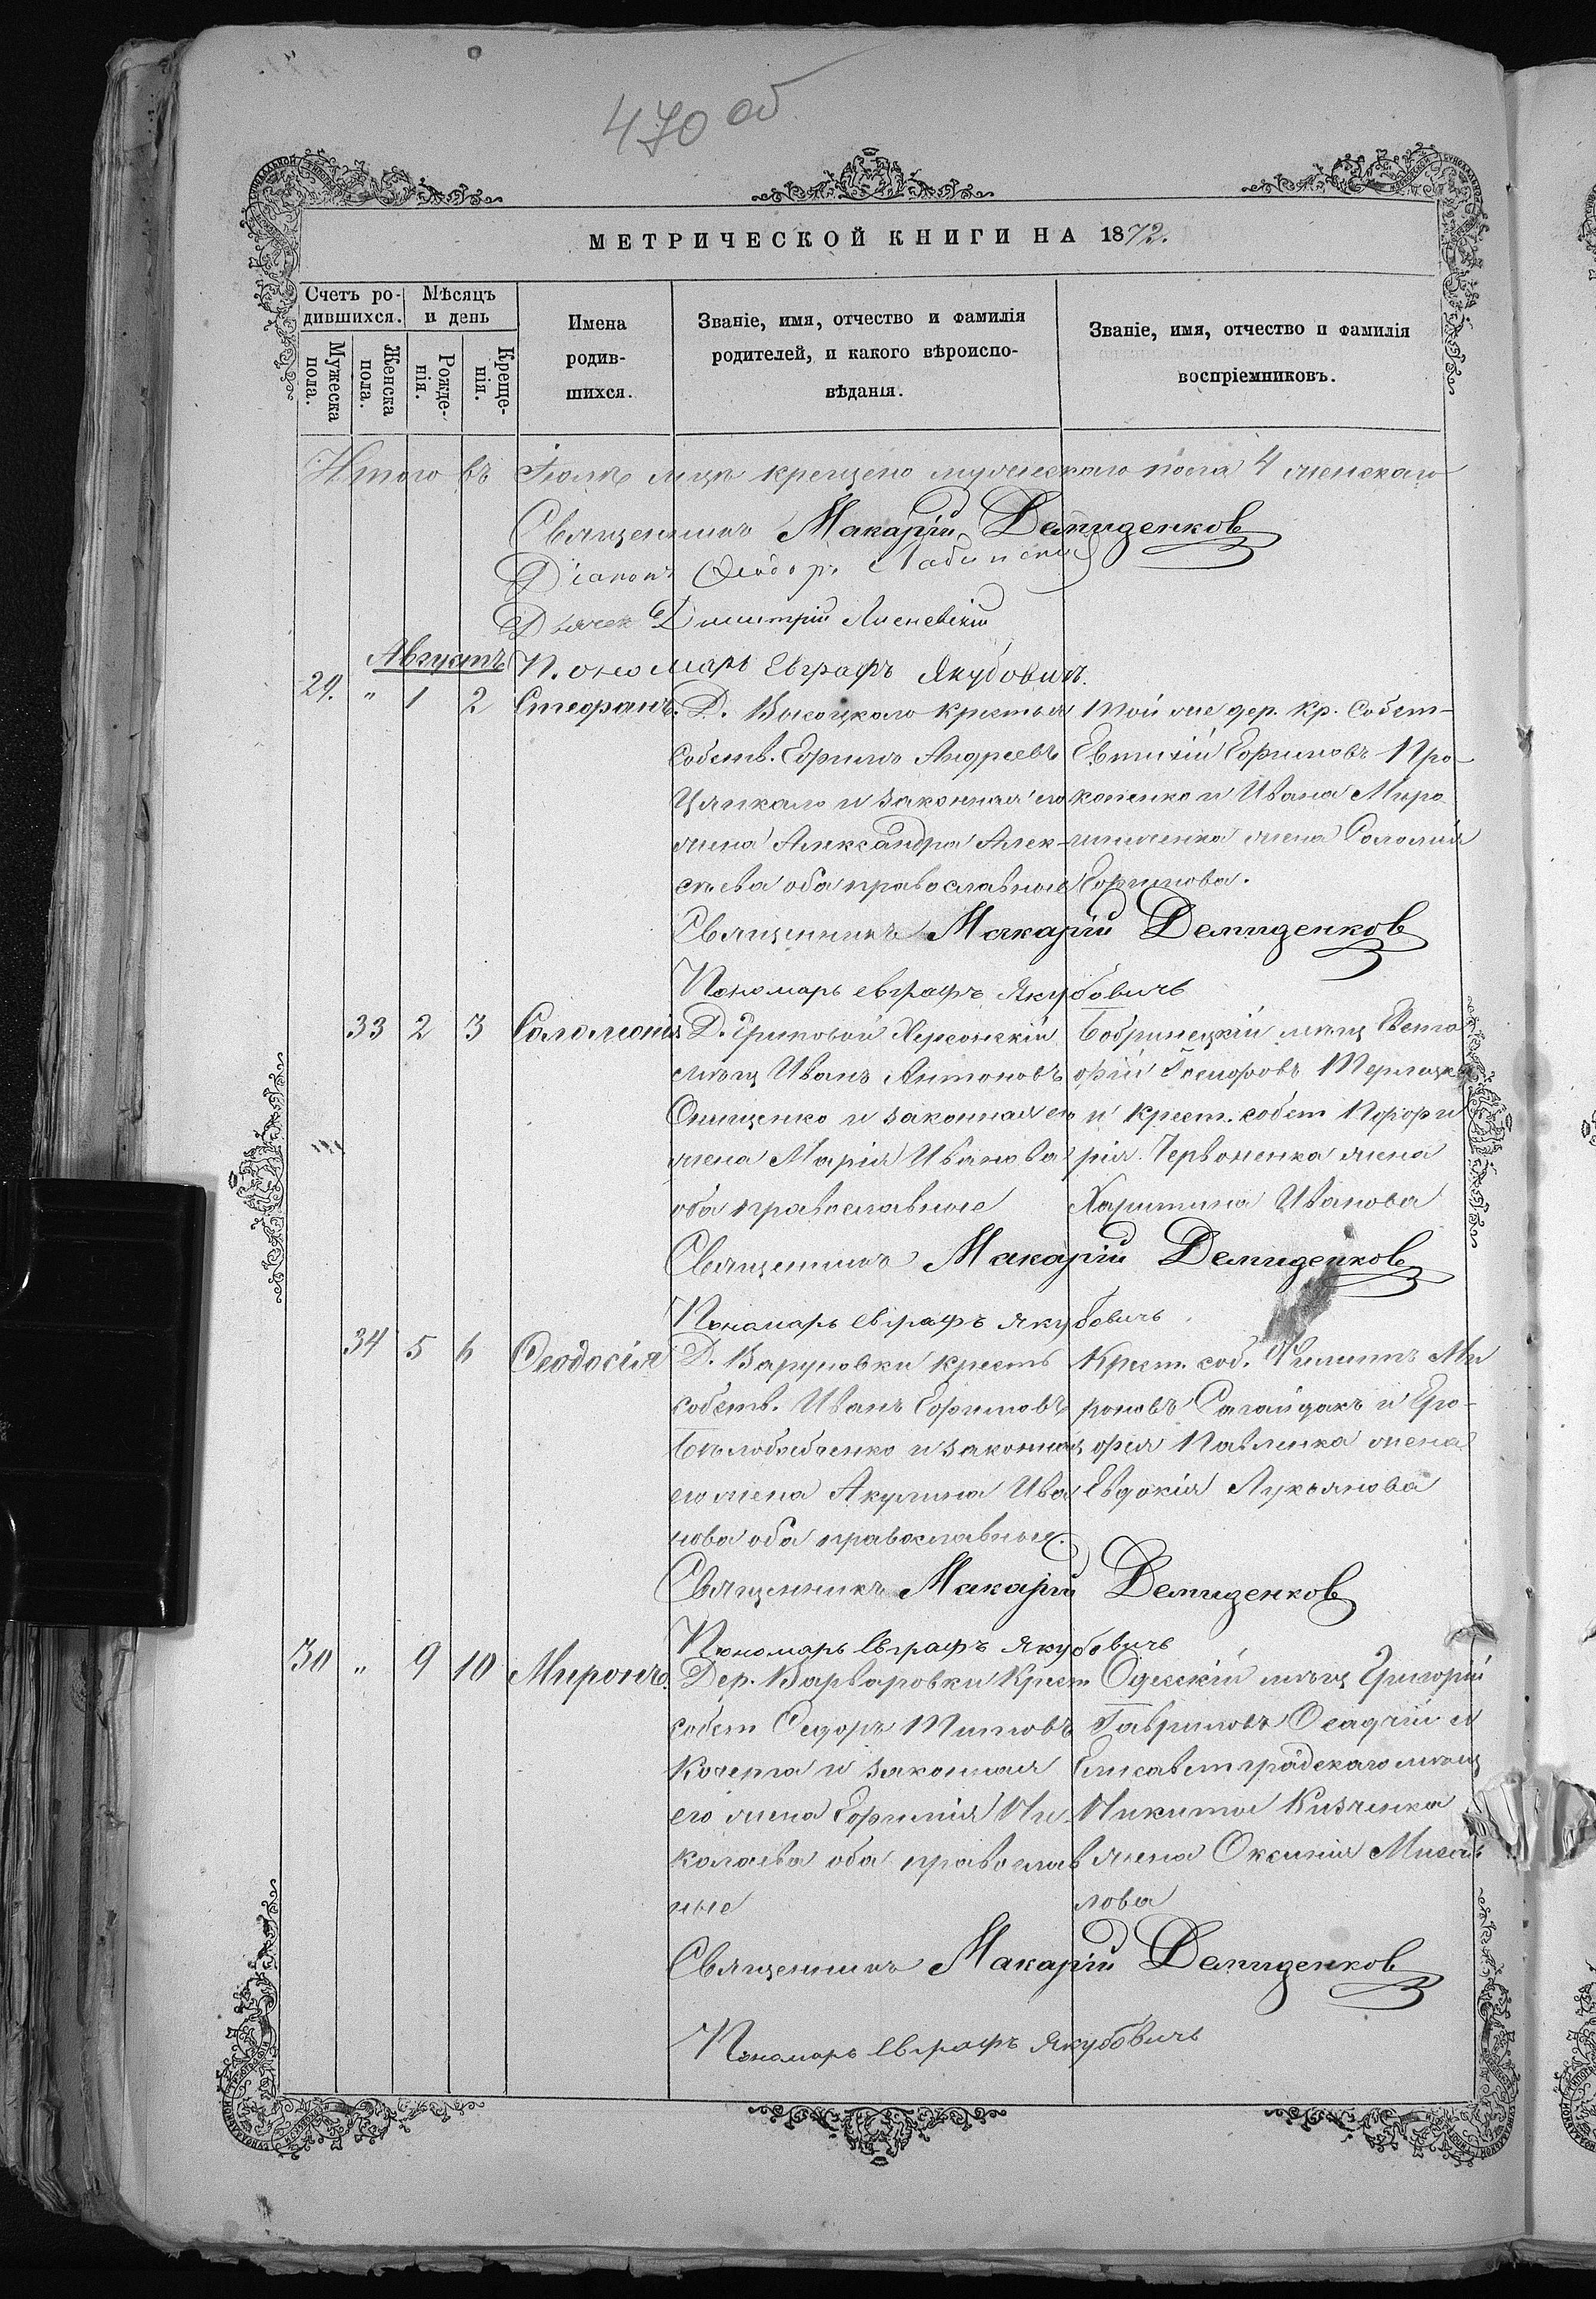 470 об
МЕТРИЧЕСКОЙ КНИГИ НА 1872.
Счетъ ро-
дившихся.
Мѣсяцъ
и день
Мужеска
пола.
Женска
пола.
Рожде-
нія.
Креще-
нія.
Имена
родив-
шихся.
Званіе, имя, отчество и фамилія
родителей, и какого вѣроиспо-
вѣданія.
Званіе, имя, отчество и фамилія
воспріемниковъ.
Итого въ Іюлѣ м-цѣ крещено мужескаго пола 4 женскаго
Священникъ Макарій Демиденков
Діаконъ Ѳеодоръ
Дьячекъ Димитрій Лисневскій
Августъ Пономарь Евграфъ Якубовичъ.
29. " 1 2 Стефанъ.
Д. Высоцкаго крестья
собств. Ефримъ Андреевъ
Цапкало и законная его
жена Александра Алек-
сѣева оба православные
Той же дер. кр. Собст-
Евтихій Ефимовъ Про-
копенко и Ивана Миро
шниченка жена Соломія
Ефимова.
Священникъ Макарій Демиденков
Пономарь Евграфъ Якубовичъ
33 2 3 Соломонія
Д. Трикотой Херсонскій
мѣщ Иванъ Антоновъ
Онищенко и законная его
жена Марія Иванова
оба православные
Бобринецкій мѣщ
и крест. собст Порфи
рія Червоненка жена
Харитина Иванова
Священникъ Макарій Демиденков
Пономарь Евграфъ Якубовичъ
34 5 6 Ѳеодосія
Д. Варуновки крестъ
собств. Иванъ Ефимовъ
Бѣлобабченко и законная
его жена Акулина Ива
нова оба православные.
Крест. соб. Филиппъ Ми
роновъ Сагайдакъ и Гри-
орія Павленка жена
Евдокія Лукьянова
Священникъ Макарій Демиденков
Пономарь Евграфъ Якубовичъ
30 " 9 10 Миронъ.
Дер. Варваровки Крест
собст Сидоръ Титовъ
Кочерга и законная
его жена Ефимія Ни-
колаева оба православ
ные
Одесскій мѣщ Григорій
Гавриловъ Осадчій и
Елисаветградскаго мѣщ
Никиты Кизченка
жена Оксинія Михай
лова
Священникъ Макарій Демиденков
Пономарь Евграфъ Якубовичъ